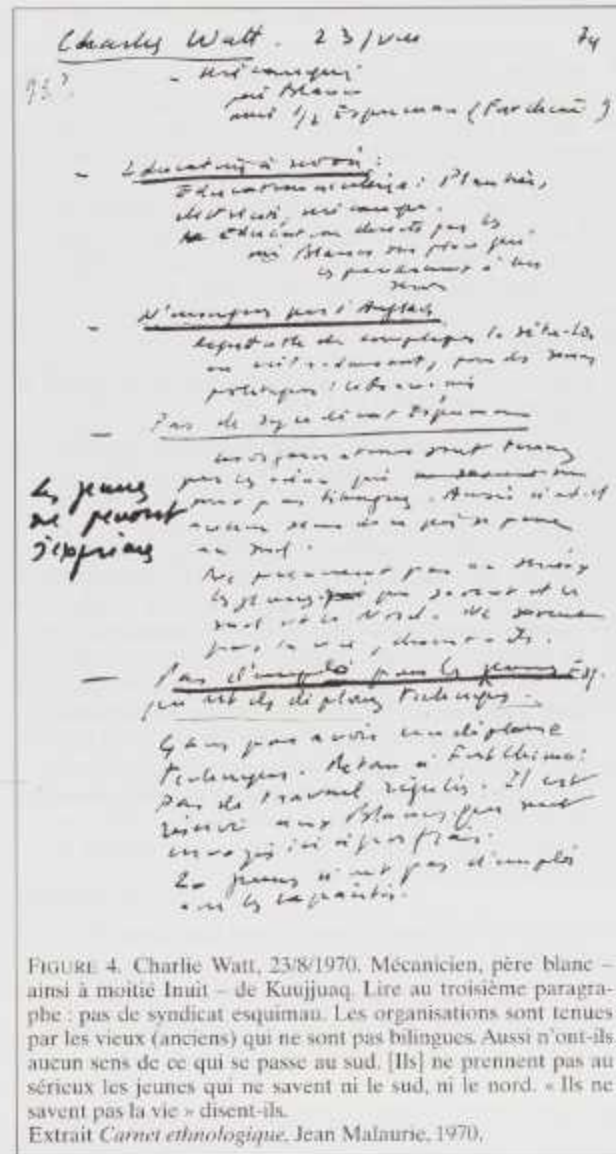 Charlie Watt. 23/VIII 74
93?
- mécanicien
père Blanc
ainsi 1/2 Esquimau (Fort Chimo)
- Education à revoir :
Education : Plombier,
électricité, mécanique.
Education directe par les
Blancs sur place qui
- N'enseignez pas l'Anglais
politiques
- Pas de syndicat Esquimau
Les organisations sont tenues
par les vieux qui
sont pas bilingues. Aussi n'ont-ils
aucun sens de ce qui se passe
au sud.
Les jeunes
ne peuvent
s'exprimer
Ne prennent pas au sérieux
les jeunes qui savent ni le
sud ni le Nord. Ne savent
pas la vie, disent-ils.
- Pas d'emploi pour les jeunes Esq.
qui ont des diplômes techniques.
4 ans pour avoir un diplôme
technique. Retour à Fort Chimo :
pas de travail régulier. Il est
réservé aux Blancs qui sont
ici à gros frais.
20 jeunes n'ont pas d'emploi
les capacités.
FIGURE 4. Charlie Watt, 23/8/1970. Mécanicien, père blanc –
ainsi à moitié Inuit – de Kuujjuaq. Lire au troisième paragra-
phe : pas de syndicat esquimau. Les organisations sont tenues
par les vieux (anciens) qui ne sont pas bilingues. Aussi n'ont-ils
aucun sens de ce qui se passe au sud. [Ils] ne prennent pas au
sérieux les jeunes qui ne savent ni le sud, ni le nord. « Ils ne
savent pas la vie » disent-ils.
Extrait Carnet ethnologique. Jean Malaurie, 1970.